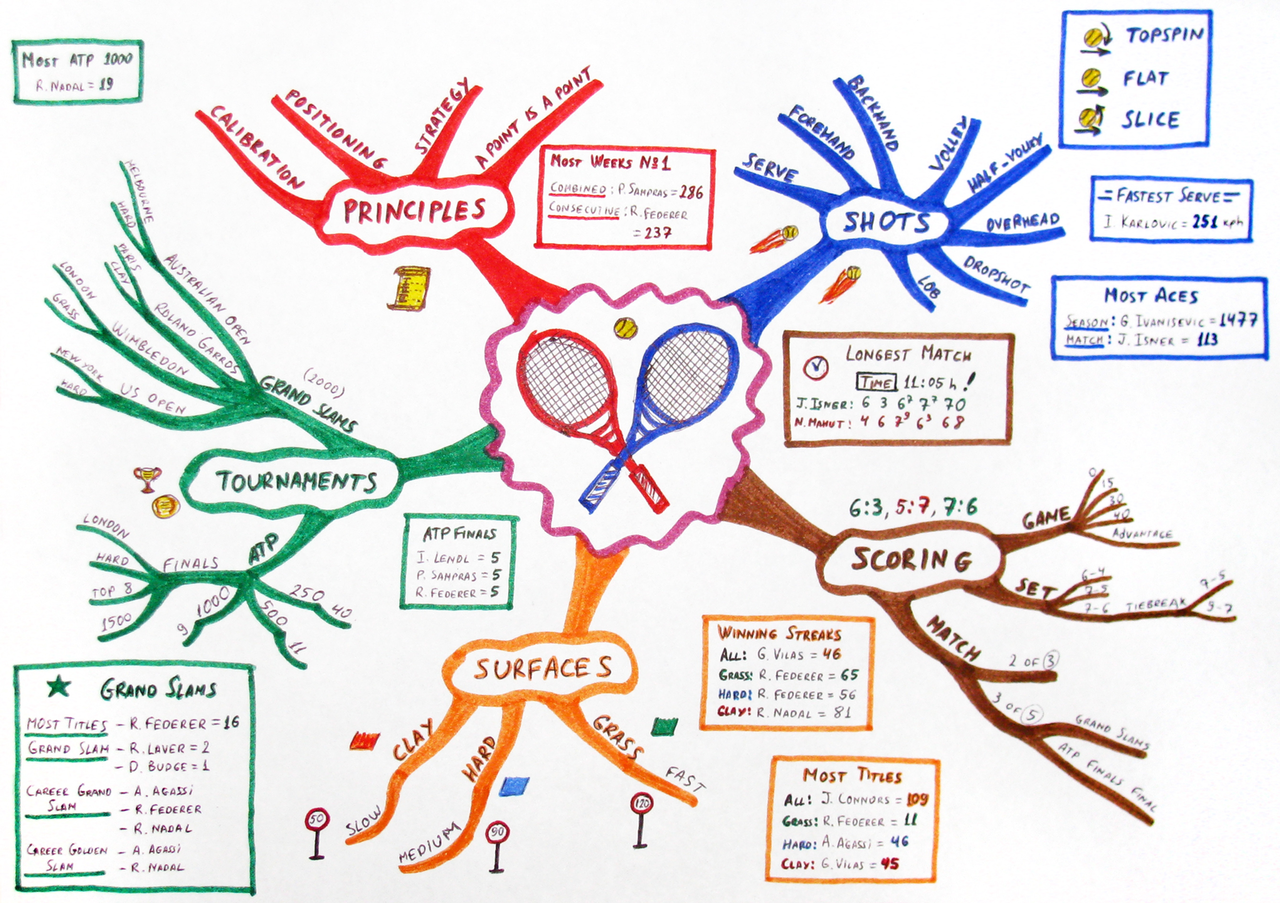 MOST ATP 1000
R. NADAL = 19
CALIBRATION
POSITIONING
STRATEGY
A POINT IS A POINT
PRINCIPLES
MOST WEEKS №1
COMBINED: P. SAMPRAS = 286
CONSECUTIVE: R. FEDERER
= 237
SERVE
FOREHAND
BACKHAND
VOLLEY
HALF-VOLLEY
OVERHEAD
DROPSHOT
LOB
SHOTS
TOPSPIN
FLAT
SLICE
= FASTEST SERVE =
I. KARLOVIC = 251 kph
MOST ACES
SEASON: G. IVANISEVIC = 1477
MATCH: J. ISNER = 113
LONGEST MATCH
TIME 11:05 h!
J. ISNER: 6 3 6⁷ 7⁷ 70
N. MAHUT: 4 6 7⁹ 6³ 68
MELBOURNE
HARD
AUSTRALIAN OPEN
PARIS
CLAY
ROLAND GARROS
LONDON
GRASS
WIMBLEDON
NEW YORK
HARD
US OPEN
(2000)
GRAND SLAMS
TOURNAMENTS
ATP
FINALS
LONDON
HARD
TOP 8
1500
1000
9
500
11
250
40
ATP FINALS
I. LENDL = 5
P. SAMPRAS = 5
R. FEDERER = 5
6:3, 5:7, 7:6
SCORING
GAME
0
15
30
40
ADVANTAGE
SET
6-4
7-5
7-6
TIEBREAK
7-5
9-7
MATCH
2 OF 3
3 OF 5
GRAND SLAMS
ATP FINALS FINAL
SURFACES
CLAY
SLOW
HARD
MEDIUM
GRASS
FAST
50
90
120
WINNING STREAKS
ALL: G. VILAS = 46
GRASS: R. FEDERER = 65
HARD: R. FEDERER = 56
CLAY: R. NADAL = 81
MOST TITLES
ALL: J. CONNORS = 109
GRASS: R. FEDERER = 11
HARD: A. AGASSI = 46
CLAY: G. VILAS = 45
GRAND SLAMS
MOST TITLES - R. FEDERER = 16
GRAND SLAM - R. LAVER = 2
- D. BUDGE = 1
CAREER GRAND - A. AGASSI
SLAM - R. FEDERER
- R. NADAL
CAREER GOLDEN - A. AGASSI
SLAM - R. NADAL